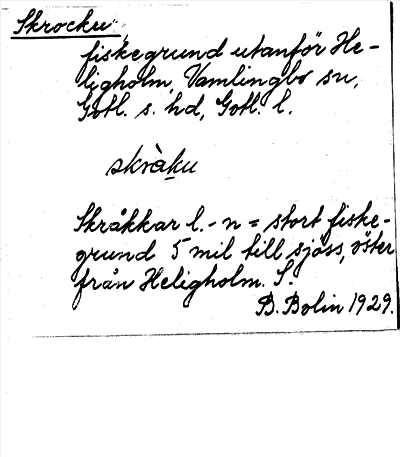 Skrocku,
fiskegrund utanför He-
ligholm, Vamlingbo sn,
Gotl. s. hd, Gotl. l.
skràku
Skråkkar l. - n = stort fiske-
grund 5 mil till sjöss, öster
från Heligholm. S.
B. Bolin 1929.